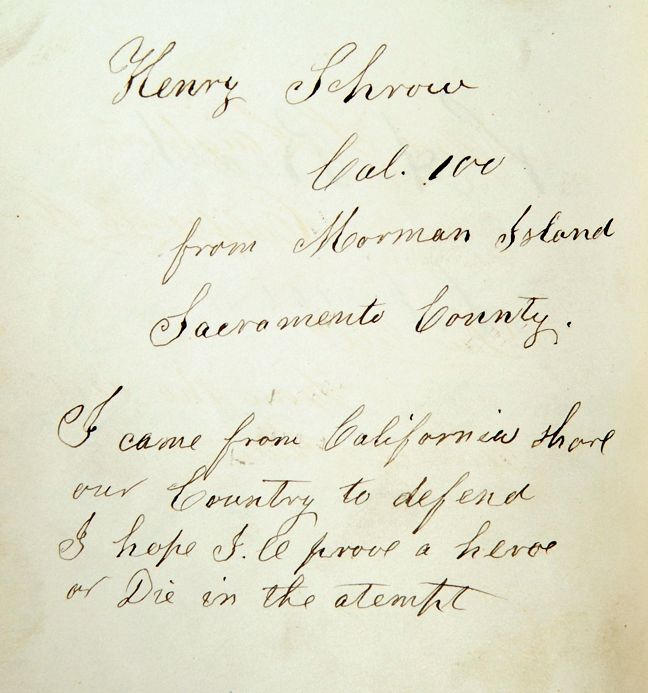 Henry Schrow
Cal. 100
from Morman Island
Sacramento County.
I came from California shore
our Country to defend
I hope I.le prove a heroe
or Die in the atempt